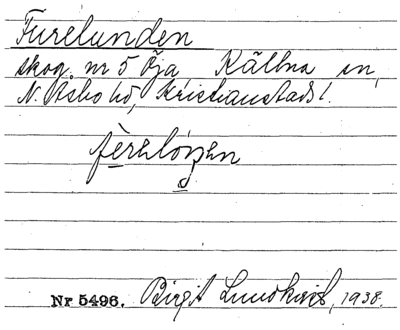 Furelunden
skog. nr 5 Öja Källna sn,
N. Åsbo hd, Kristianstads l.
fèrelónen
Nr 5496. Birgit Lundkvist, 1938.